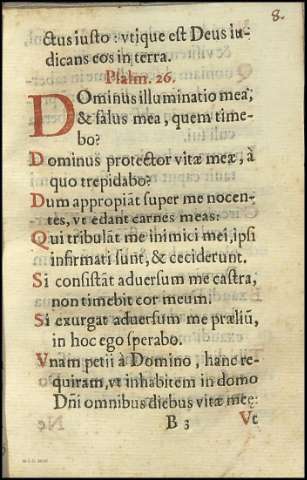 8.
ctus iusto : vtique est Deus iu-
dicans eos in terra.
Psalm. 26.
DOminus illuminatio mea,
& salus mea, quem time-
bo?
Dominus protector vitæ meæ, à
quo trepidabo?
Dum appropiãt super me nocen-
tes, vt edant carnes meas:
Qui tribulãt me inimici mei, ipsi
infirmati sunt, & ceciderunt.
Si consistãt aduersum me castra,
non timebit cor meum:
Si exurgat aduersum me præliũ,
in hoc ego sperabo.
Vnam petii à Domino, hanc re-
quiram, vt inhabitem in domo
Dñi omnibus diebus vitæ meę:
B 3 Vt